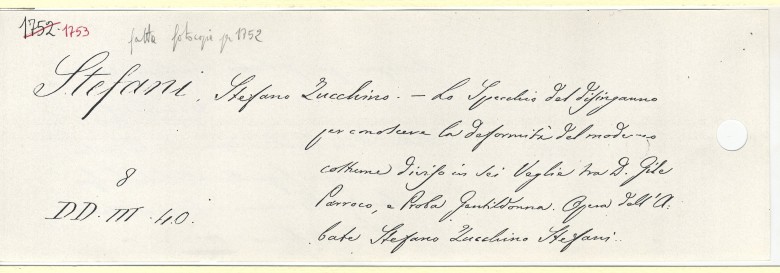 1752-1753
fatta fotocopia per 1752
Stefani, Stefano Zucchino. - Lo Specchio del disinganno
per conoscere la deformità del moderno
costume diviso in sei Veglie tra D. Gile
Parroco, e Proba Gentildonna. Opera dell'A:
bate Stefano Zucchino Stefani.
8
DD. III. 40.